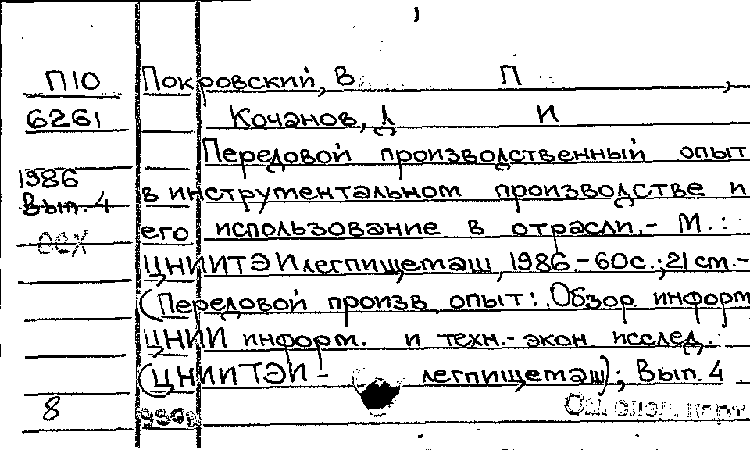 П10 Покровский, В П ,
6261 Кочанов, Д И
Передовой производственный опыт
1986 в инструментальном производстве и
Вып. 4 его использование в отрасли.- М.:
ЦНИИТЭИлегпищемаш, 1986.-60с.;21см.-
(Передовой произв. опыт: Обзор. информ
ЦНИИ информ. и техн.-экон. исслед.
(ЦНИИТЭИ- легпищемаш); Вып. 4
8